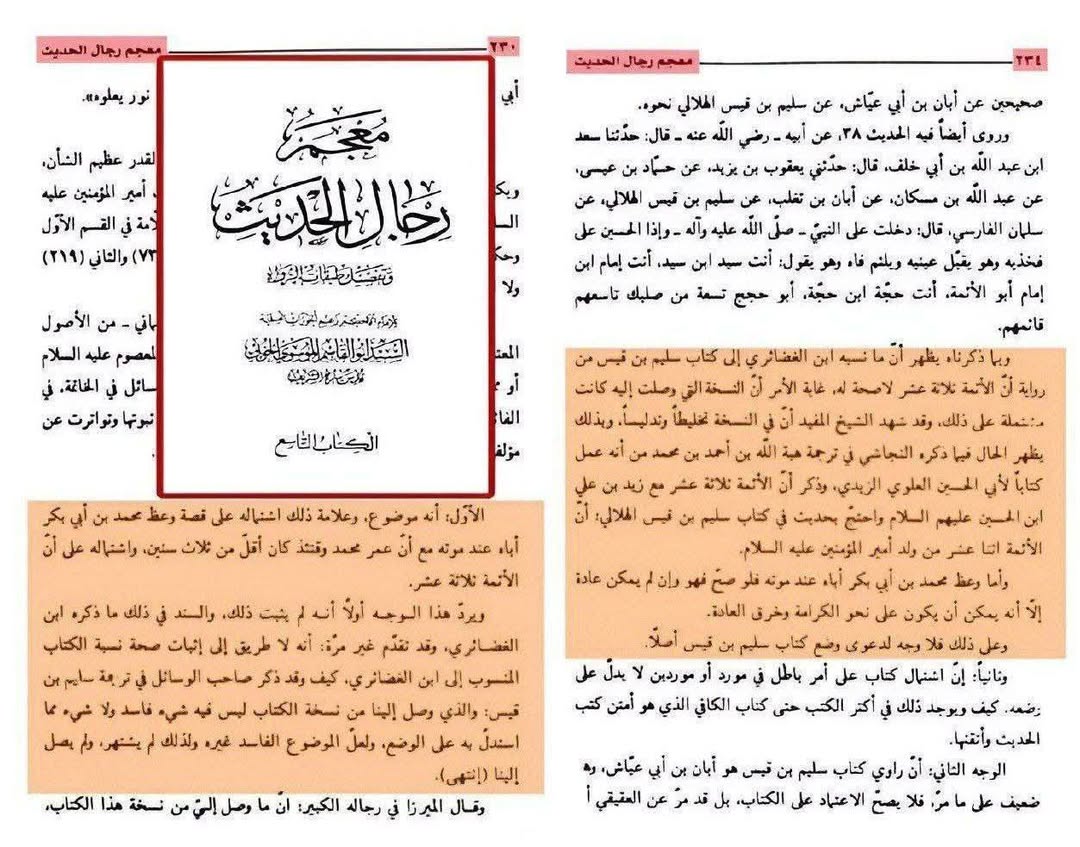 معجم رجال الحديث ٢٣٤
صحيحين عن أبان بن أبي عيّاش، عن سليم بن قيس الهلالي نحوه.
وروى أيضاً فيه الحديث ٣٨، عن أبيه ـ رضي اللّه عنه ـ قال: حدّثنا سعد
ابن عبد اللّه بن أبي خلف، قال: حدّثني يعقوب بن يزيد، عن حمّاد بن عيسى،
عن عبد اللّه بن مسكان، عن أبان بن تغلب، عن سليم بن قيس الهلالي، عن
سلمان الفارسي، قال: دخلت على النبيّ ـ صلّى اللّه عليه وآله ـ وإذا الحسين على
فخذيه وهو يقبّل عينيه ويلثم فاه وهو يقول: أنت سيد ابن سيد، أنت إمام ابن
إمام أبو الأئمة، أنت حجّة ابن حجّة، أبو حجج تسعة من صلبك تاسعهم
قائمهم.
وبما ذكرناه يظهر أنّ ما نسبه ابن الغضائري إلى كتاب سليم بن قيس من
رواية أنّ الأئمة ثلاثة عشر لاصحة له، غاية الأمر أنّ النسخة التي وصلت إليه كانت
مشتملة على ذلك، وقد شهد الشيخ المفيد أنّ في النسخة تخليطاً وتدليساً، وبذلك
يظهر الحال فيما ذكره النجاشي في ترجمة هبة اللّه بن أحمد بن محمد من أنه عمل
كتاباً لأبي الحسين العلوي الزيدي، وذكر أنّ الأئمة ثلاثة عشر مع زيد بن علي
ابن الحسين عليهم السلام واحتجّ بحديث في كتاب سليم بن قيس الهلالي: أنّ
الأئمة اثنا عشر من ولد أمير المؤمنين عليه السلام.
وأما وعظ محمد بن أبي بكر أباه عند موته فلو صحّ فهو وإن لم يمكن عادة
إلّا أنه يمكن أن يكون على نحو الكرامة وخرق العادة.
وعلى ذلك فلا وجه لدعوى وضع كتاب سليم بن قيس أصلًا.
وثانياً: إنّ اشتمال كتاب على أمر باطل في مورد أو موردين لا يدلّ على
وضعه. كيف ويوجد ذلك في أكثر الكتب حتى كتاب الكافي الذي هو أمتن كتب
الحديث وأتقنها.
الوجه الثاني: أنّ راوي كتاب سليم بن قيس هو أبان بن أبي عيّاش، وه
ضعيف على ما مرّ، فلا يصحّ الاعتماد على الكتاب، بل قد مرّ عن العقيقي أ
معجم رجال الحديث ٢٣٠
أبي نور يعلوه».
لقدر عظيم الشأن،
ويك أمير المؤمنين عليه
الس لّامة في القسم الأوّل
وحك (٧٣ والثاني (٢١٩)
ولا
ماني ـ من الأصول
المعت لمعصوم عليه السلام
أو سائل في الخاتمة، في
الفائ ثبوتها وتواترت عن
مؤلف
مُعْجَم
رجال الحديث
وتفصيل طبقات الرواة
السيد أبو القاسم الموسوي الخوئي
الكتاب التاسع
الأوّل: أنه موضوع، وعلامة ذلك اشتماله على قصة وعظ محمد بن أبي بكر
أباه عند موته مع أنّ عمر محمد وقتئذ كان أقلّ من ثلاث سنين، واشتماله على أنّ
الأئمة ثلاثة عشر.
ويردّ هذا الوجه أولًا أنه لم يثبت ذلك، والسند في ذلك ما ذكره ابن
الغضائري، وقد تقدّم غير مرّة: أنه لا طريق إلى إثبات صحة نسبة الكتاب
المنسوب إلى ابن الغضائري، كيف وقد ذكر صاحب الوسائل في ترجمة سليم بن
قيس: والذي وصل إلينا من نسخة الكتاب ليس فيه شيء فاسد ولا شيء مما
استدلّ به على الوضع، ولعلّ الموضوع الفاسد غيره ولذلك لم يشتهر، ولم يصل
إلينا (إنتهى).
وقال الميرزا في رجاله الكبير: انّ ما وصل إليّ من نسخة هذا الكتاب،